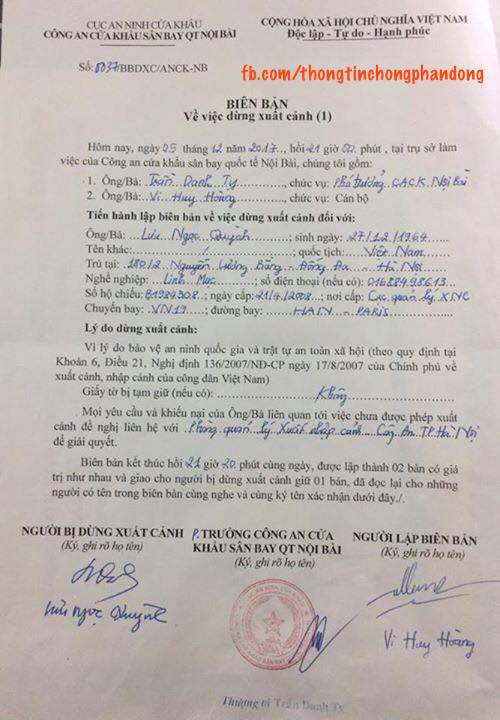 CỤC AN NINH CỬA KHẨU
CÔNG AN CỬA KHẨU SÂN BAY QT NỘI BÀI
CỘNG HÒA XÃ HỘI CHỦ NGHĨA VIỆT NAM
Độc lập - Tự do - Hạnh phúc
Số: 0037/BBDXC/ANCK-NB
fb.com/thongtinchongphandong
BIÊN BẢN
Về việc dừng xuất cảnh (1)
Hôm nay, ngày 05 tháng 12 năm 2017, hồi 21 giờ 00 phút, tại trụ sở làm
việc của Công an cửa khẩu sân bay quốc tế Nội Bài, chúng tôi gồm:
1. Ông/Bà: Trần Danh Tỵ, chức vụ: Phó trưởng CACK Nội Bài
2. Ông/Bà: Vi Huy Hoàng, chức vụ: Cán bộ
Tiến hành lập biên bản về việc dừng xuất cảnh đối với:
Ông/Bà: Lưu Ngọc Quỳnh; sinh ngày: 27/12/1964
Tên khác: /; quốc tịch: Việt Nam
Trú tại: 180/2 Nguyễn Lương Bằng - Đống Đa - Hà Nội
Nghề nghiệp: Linh Mục; số điện thoại (nếu có):
Số hộ chiếu: B1984308; ngày cấp: 21/4/2008; nơi cấp: Cục quản lý XNC
Chuyến bay: VN19; đường bay: HAN - PARIS
Lý do dừng xuất cảnh:
Vì lý do bảo vệ an ninh quốc gia và trật tự an toàn xã hội (theo quy định tại
Khoản 6, Điều 21, Nghị định 136/2007/NĐ-CP ngày 17/8/2007 của Chính phủ về
xuất cảnh, nhập cảnh của công dân Việt Nam)
Giấy tờ bị tạm giữ (nếu có): Không
Mọi yêu cầu và khiếu nại của Ông/Bà liên quan tới việc chưa được phép xuất
cảnh đề nghị liên hệ với Phòng quản lý Xuất nhập cảnh Công An TP Hà Nội
để giải quyết.
Biên bản kết thúc hồi 21 giờ 20 phút cùng ngày, được lập thành 02 bản có giá
trị như nhau và giao cho người bị dừng xuất cảnh giữ 01 bản, đã đọc lại cho những
người có tên trong biên bản cùng nghe và cùng ký tên xác nhận dưới đây./.
NGƯỜI BỊ DỪNG XUẤT CẢNH
(Ký, ghi rõ họ tên)
P. TRƯỞNG CÔNG AN CỬA
KHẨU SÂN BAY QT NỘI BÀI
NGƯỜI LẬP BIÊN BẢN
(Ký, ghi rõ họ tên)
Lưu Ngọc Quỳnh
Vi Huy Hoàng
Thượng tá Trần Danh Tỵ